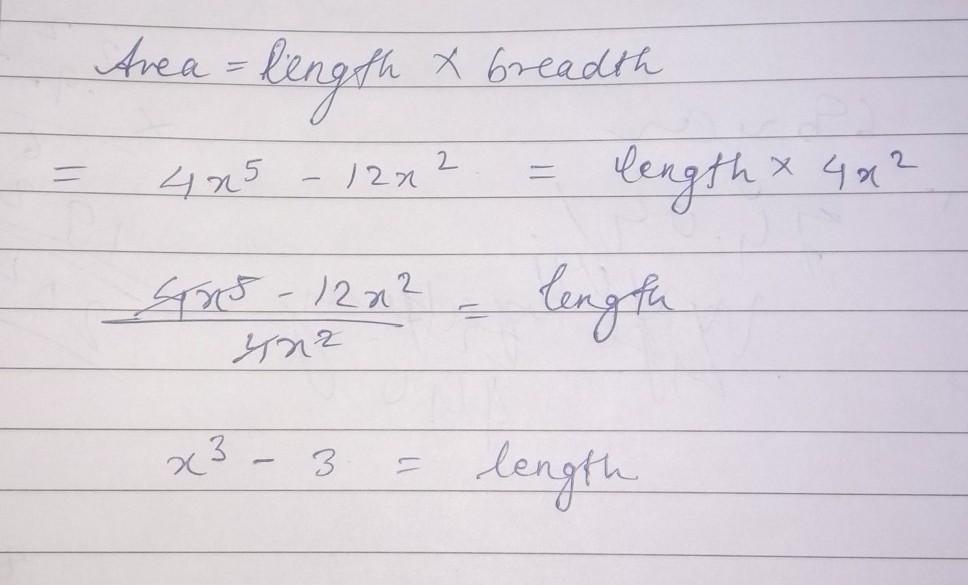 Area = length × breadth
= 4x⁵ - 12x² = length × 4x²
4x⁵ - 12x² = length
4x²
x³ - 3 = length